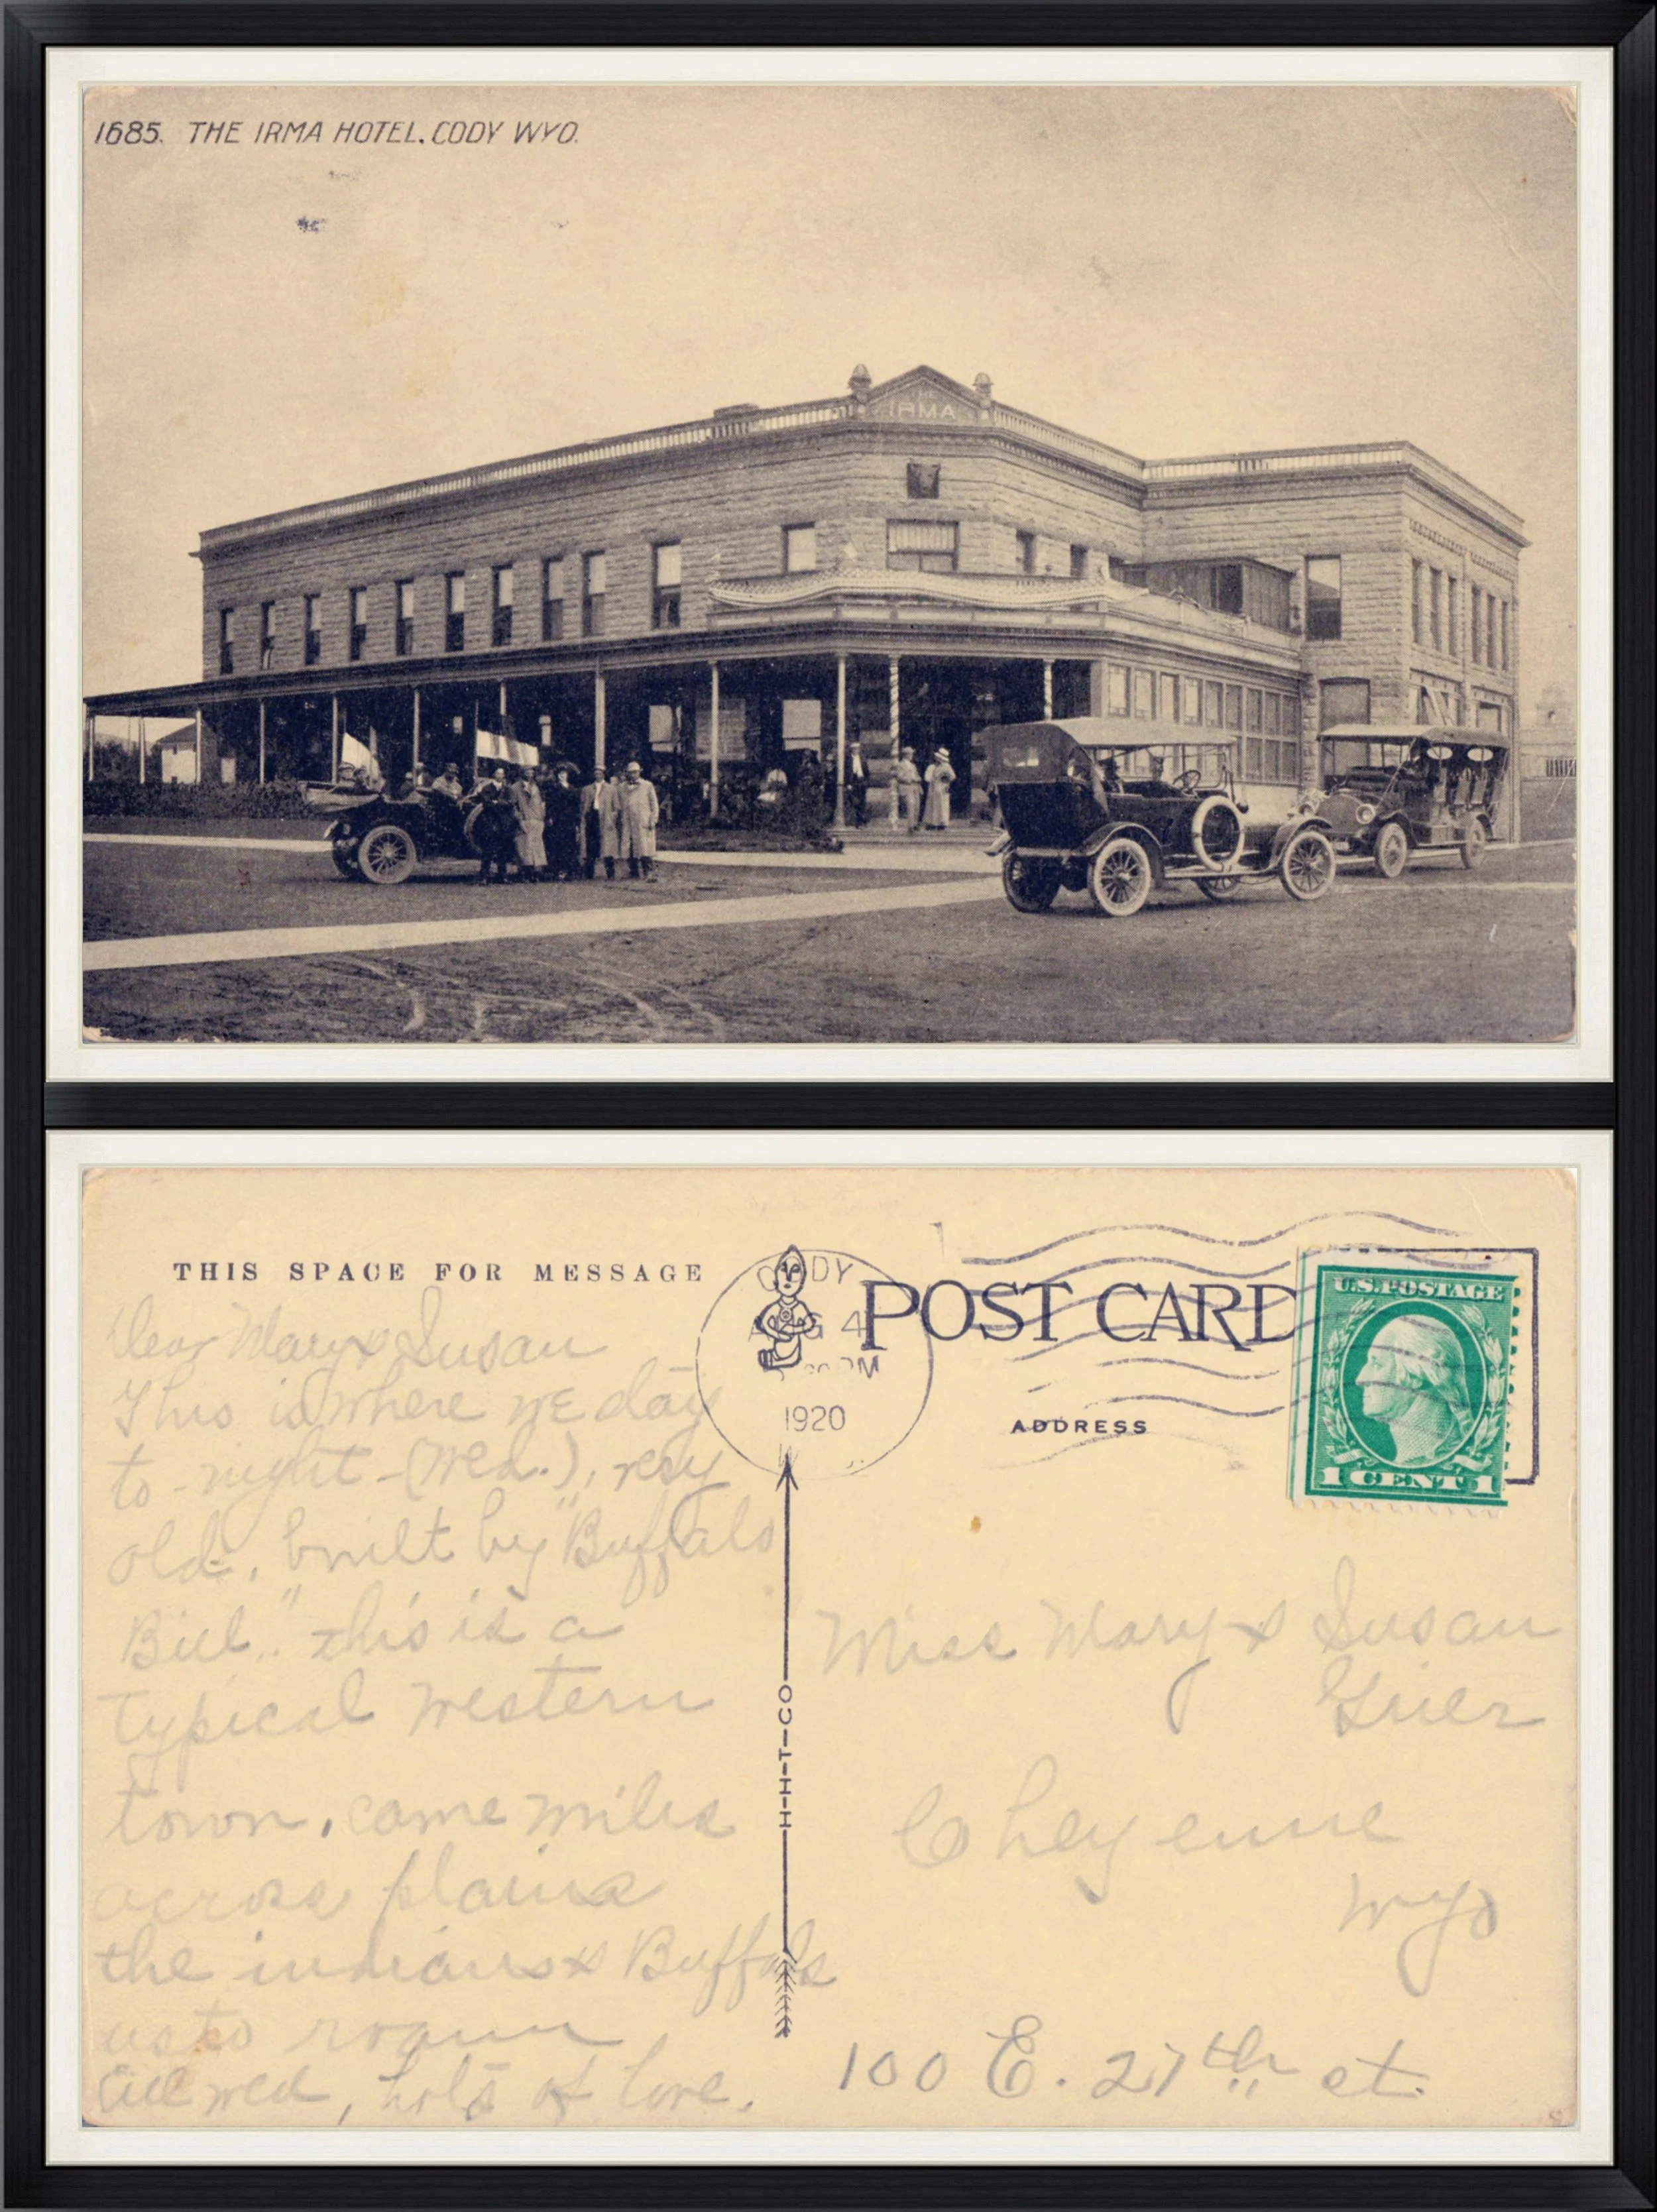 1685. THE IRMA HOTEL. CODY WYO.
THE
IRMA
THIS SPACE FOR MESSAGE
CODY
AUG 4
PM
1920
W
POST CARD
ADDRESS
U.S. POSTAGE
1 CENT 1
Dear Mary & Susan
This is where we
to-night-(Wed.),
old, built by "Buffalo
Bill." This is a
typical western
town, came miles
across plains
the indians & Buffalo
usto roam
All well, lots of love.
H-H-T-CO
Miss Mary & Susan
Grier
Cheyenne
Wyo
100 E. 27th st.